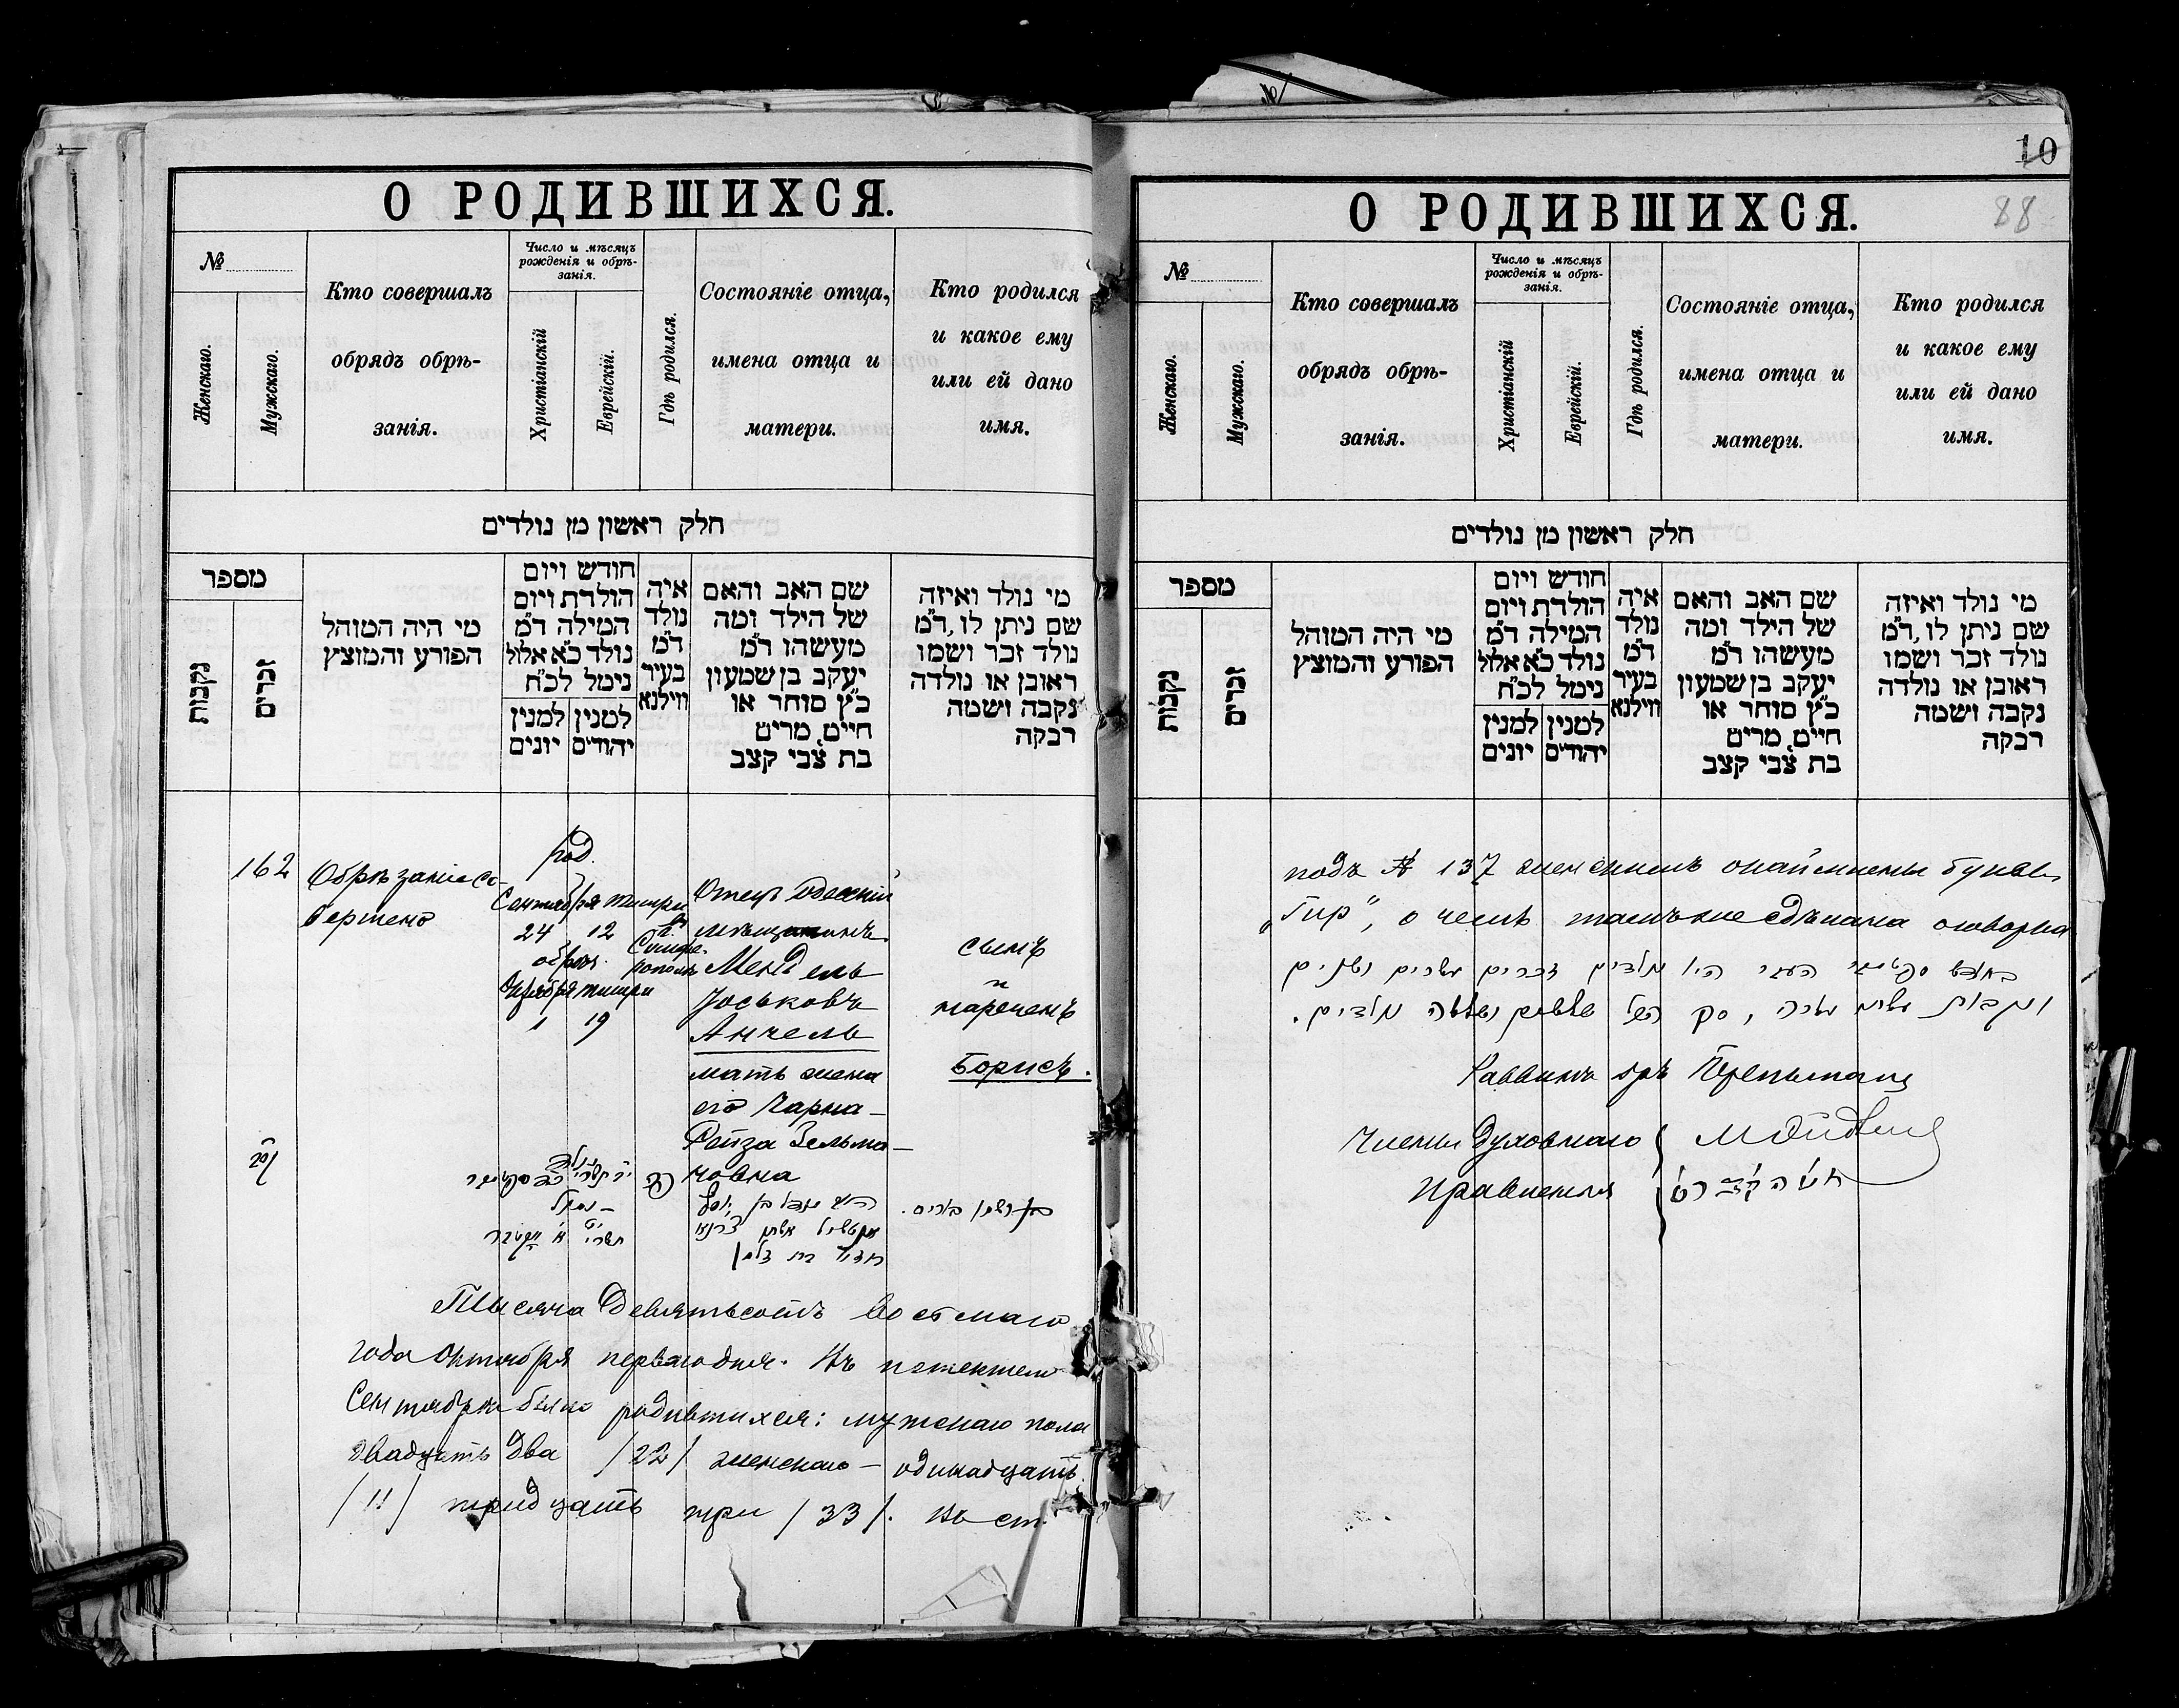 О РОДИВШИХСЯ.
№
Женскаго.
Мужскаго.
Кто совершалъ
обрядъ обрѣ-
занія.
Число и мѣсяцъ
рожденія и обрѣ-
занія.
Христіанскій
Еврейскій.
Гдѣ родился.
Состояніе отца,
имена отца и
матери.
Кто родился
и какое ему
или ей дано
имя.
חלק ראשון מן נולדים
מספר
נקבות
זכרים
מי היה המוהל
הפורע והמוצץ
חודש ויום
הולדת ויום
המילה ד"מ
נולד כ"א אלול
נימל לכ"ח
למנין יונים
למנין יהודים
איה
נולד
ד"מ
בעיר
ווילנא
שם האב והאם
של הילד ומה
מעשהו ד"מ
יעקב בן שמעון
כ"ץ סוחר או
חיים, מרים
בת צבי קצב
מי נולד ואיזה
שם ניתן לו, ד"מ
נולד זכר ושמו
ראובן או נולדה
נקבה ושמה
רבקה
162
Обрѣзаніе со-
вершено
род.
Сентября Тишри
24 12
обрѣз.
Октября тишри
1 19
в
Симфе-
рополѣ
Отецъ Одесскій
мѣщанинъ
Мендель
Іоськовъ
Анчель
мать жена
его Чарна-
Рейза Зельма-
новна
сынъ
и
нареченъ
Борисъ.
Тысяча Девятьсотъ восьмаго
года Октября перваго дня. Въ истекшемъ
Сентябрѣ было родившихся: мужскаго пола
двадцать два /22/ женскаго - одинадцать
/11/ тридцать три /33/. Въ ст.
10
88
О РОДИВШИХСЯ.
№
Женскаго.
Мужскаго.
Кто совершалъ
обрядъ обрѣ-
занія.
Число и мѣсяцъ
рожденія и обрѣ-
занія.
Христіанскій
Еврейскій.
Гдѣ родился.
Состояніе отца,
имена отца и
матери.
Кто родился
и какое ему
или ей дано
имя.
חלק ראשון מן נולדים
מספר
נקבות
זכרים
מי היה המוהל
הפורע והמוצץ
חודש ויום
הולדת ויום
המילה ד"מ
נולד כ"א אלול
נימל לכ"ח
למנין יונים
למנין יהודים
איה
נולד
ד"מ
בעיר
ווילנא
שם האב והאם
של הילד ומה
מעשהו ד"מ
יעקב בן שמעון
כ"ץ סוחר או
חיים, מרים
בת צבי קצב
מי נולד ואיזה
שם ניתן לו, ד"מ
נולד זכר ושמו
ראובן או נולדה
נקבה ושמה
רבקה
подъ № 137 буквы
„Гир“, о чемъ тамъ же сдѣлана оговорка
בחודש היו נולדים זכרים עשרים ושנים
ונקבות עשרה, סך הכל שלשים ושלשה נולדים.
Раввинъ
Члены Духовнаго
Правленія